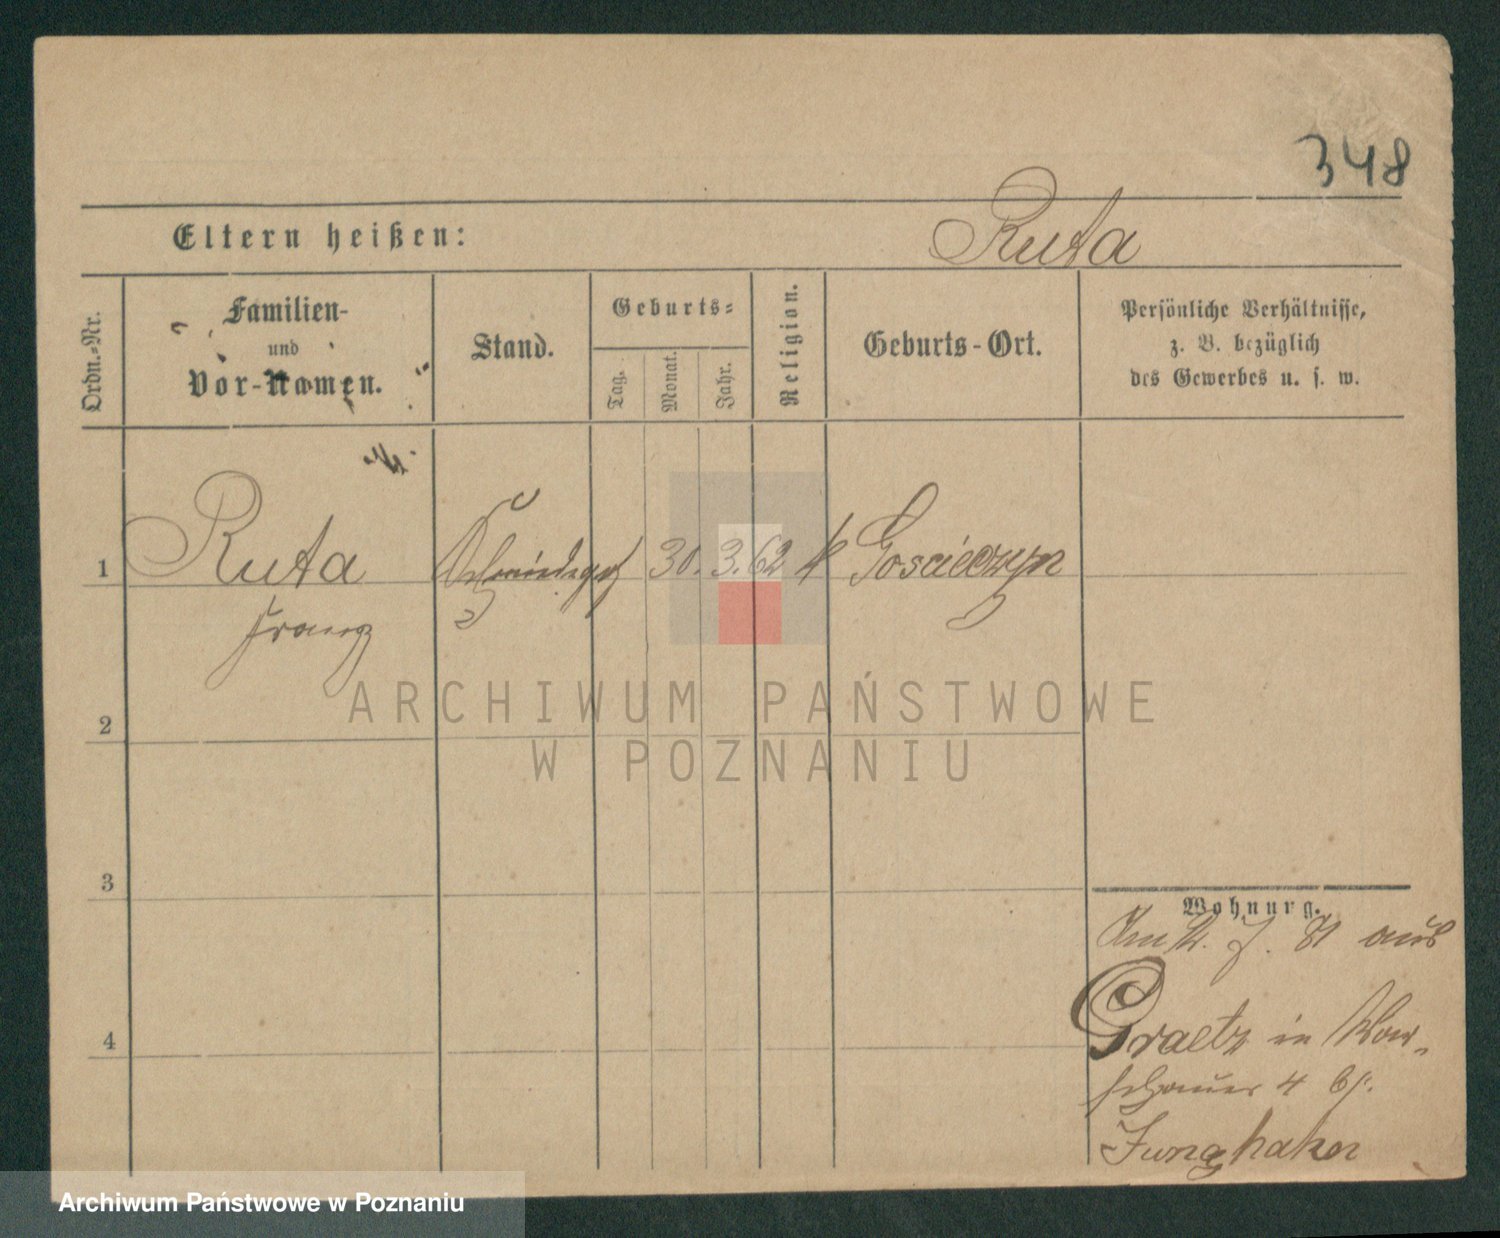 348
Eltern heißen: Ruta
Ordn.-Nr.
Familien-
und
Vor-Namen.
Stand.
Geburts-
Tag.
Monat.
Jahr.
Religion.
Geburts-Ort.
Persönliche Verhältnisse,
z. B. bezüglich
des Gewerbes u. s. w.
1 Ruta 30. 3. 62 k Goscieczyn
Franz
2
3
4
Wohnung.
81 aus
Graetz in War-
schauer 4 bei
Junghaker
ARCHIWUM PAŃSTWOWE
W POZNANIU
Archiwum Państwowe w Poznaniu